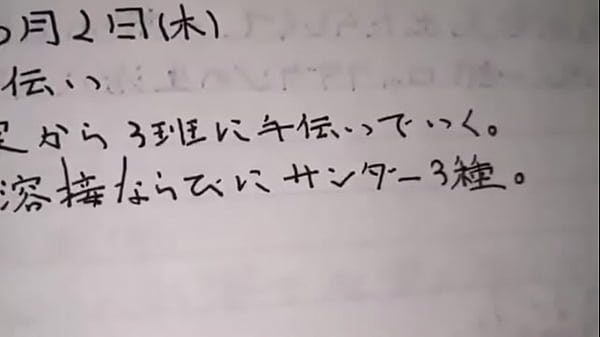 月21日(木)
伝い
から3班に手伝いっていく。
溶接ならびにサンダー3種。